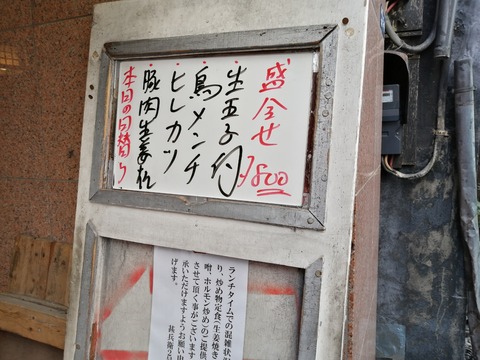 盛合せ ¥800
生玉子付
鳥メンチ
ヒレカツ
豚肉生姜焼
本日の日替り
ランチタイムでの混雑状
り、炒め物定食(生姜焼き
噌、ホルモン炒め)のご提供
させて頂く事がございます
承いただけますようお願い申
げます。
甚兵衛2